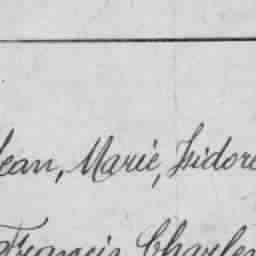 Jean, Marie, Isidore
Francis Charles